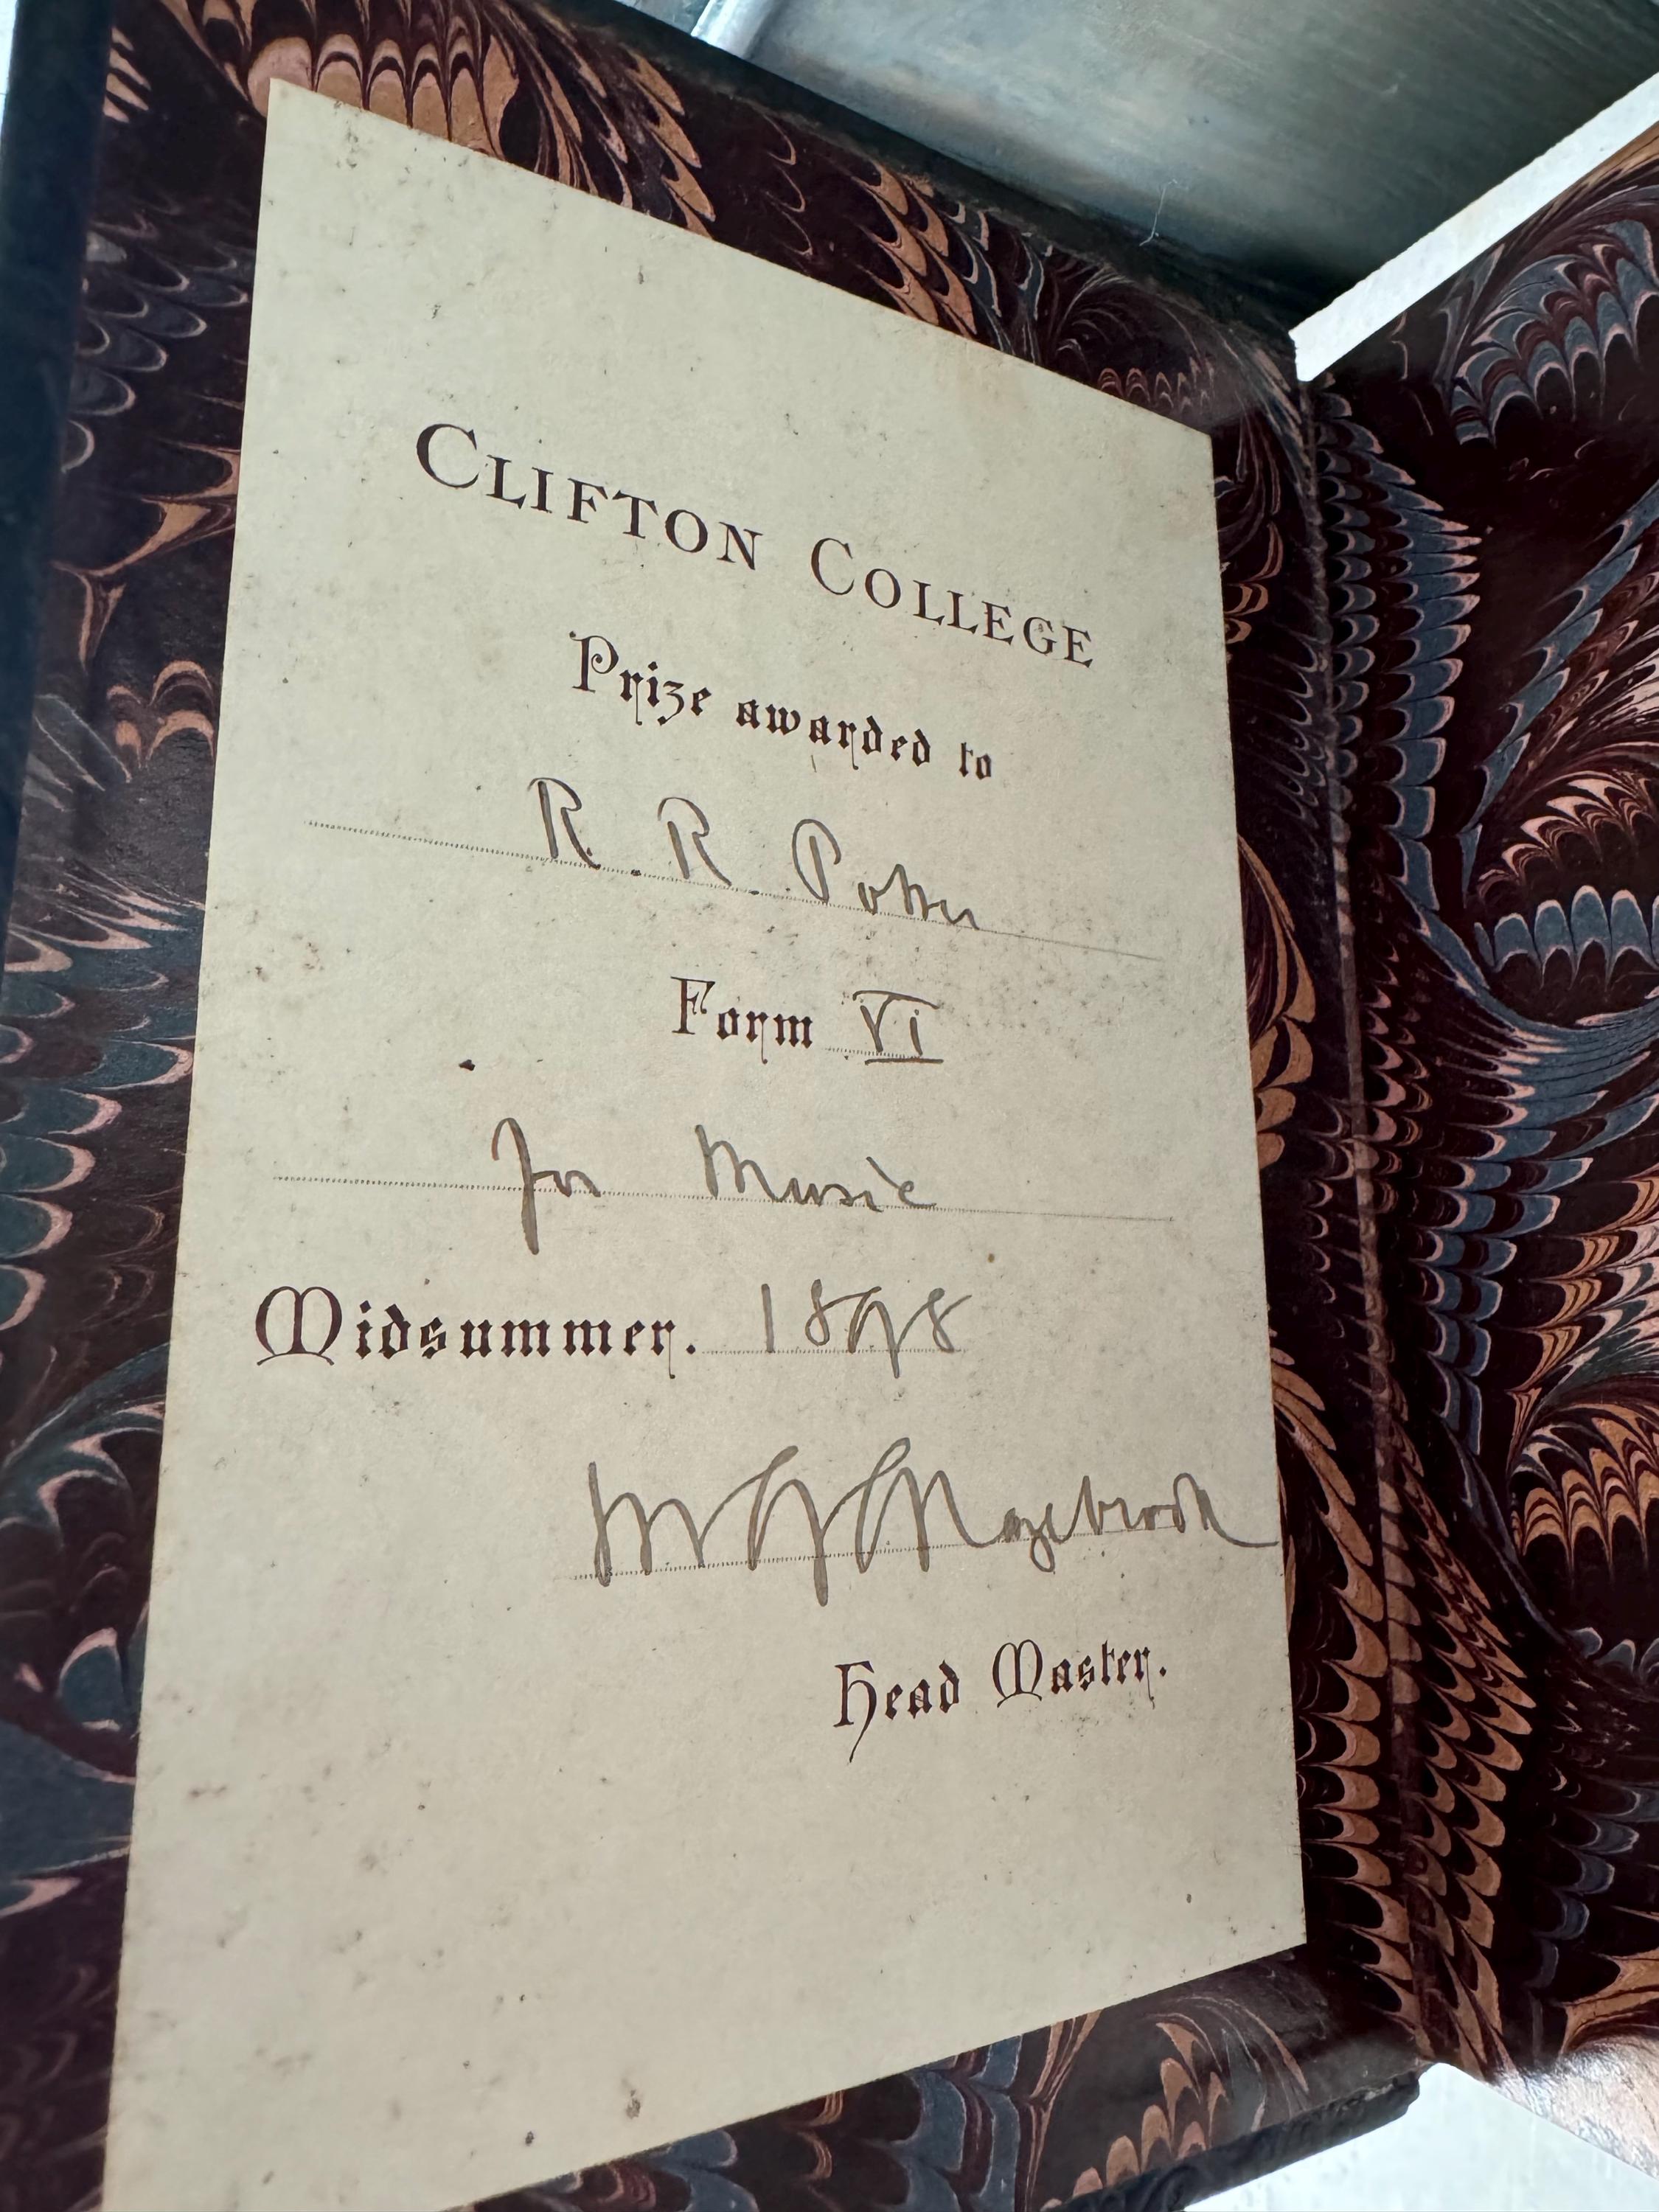 CLIFTON COLLEGE
Prize awarded to
R. R. Potter
Form VI
for Music
Midsummer. 1898
M G Glazebrook
Head Master.